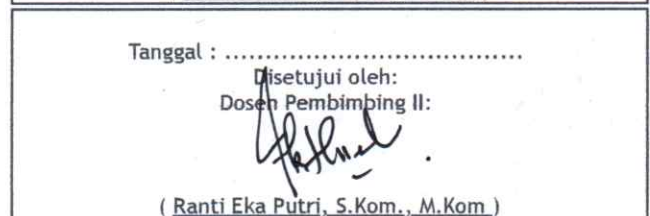 Tanggal : .....................................
Disetujui oleh:
Dosen Pembimbing II:
( Ranti Eka Putri, S.Kom., M.Kom )